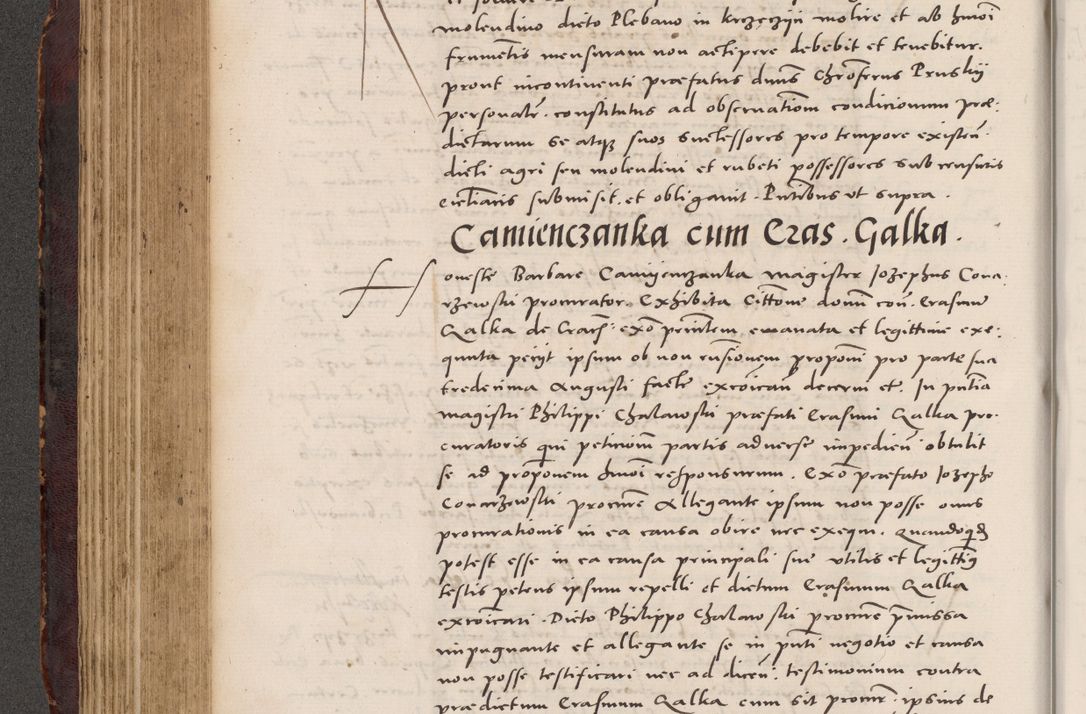 molendino dicto Plebano in krzeczijn molire et ab hmoi
frumentis mensuram non accipere debebit et tenebitur.
prout incontinenti præfatus dnus Chroferus Pruskij
personaltr. constitutus ad observationem condicionum præ-
dictarum se atqz suos successores pro tempore existen.
dicti agri seu molendini et rubeti possessores sub censuris
eccliasticis submisit. et obligavit. Pntibus ut supra.
Camienczanka cum Eras. Galka.
Honeste Barbare Camijenczanka magister Jozephus Cona-
rzewski procurator. Exhibita Cittone domn con. Erasmum
Galka de Crac. exo pnntem emanata et legittime exe-
quuta petijt ipsum ob non rnsionem proponi pro parte sua
tredecima Augusti facte excoicari decerni etc. In pntia
magistri Philippi Chalawski præfati Erasmi Galka pro-
curatoris qui peticioni partis adverse impedien. obtulit
se ad propoonem hmoi responsurum. Exo præfato Jozepho
Conarzewski procure Allegante ipsum non posse onus
procurationis in ea causa obire nec exequi. Quandoqde
potest esse in ea causa principali sue utilis et legittimus
testis petens ipsum repelli et dictum Erasmum Galka
excoicari. Dicto Philippo Chalawski procure pmissa
impugnante et allegante se in pnti negotio et causa
non posse testificari nec ad dicen. testimonium contra
prædictum Erasmum Galka cum sit procur. ipsius de